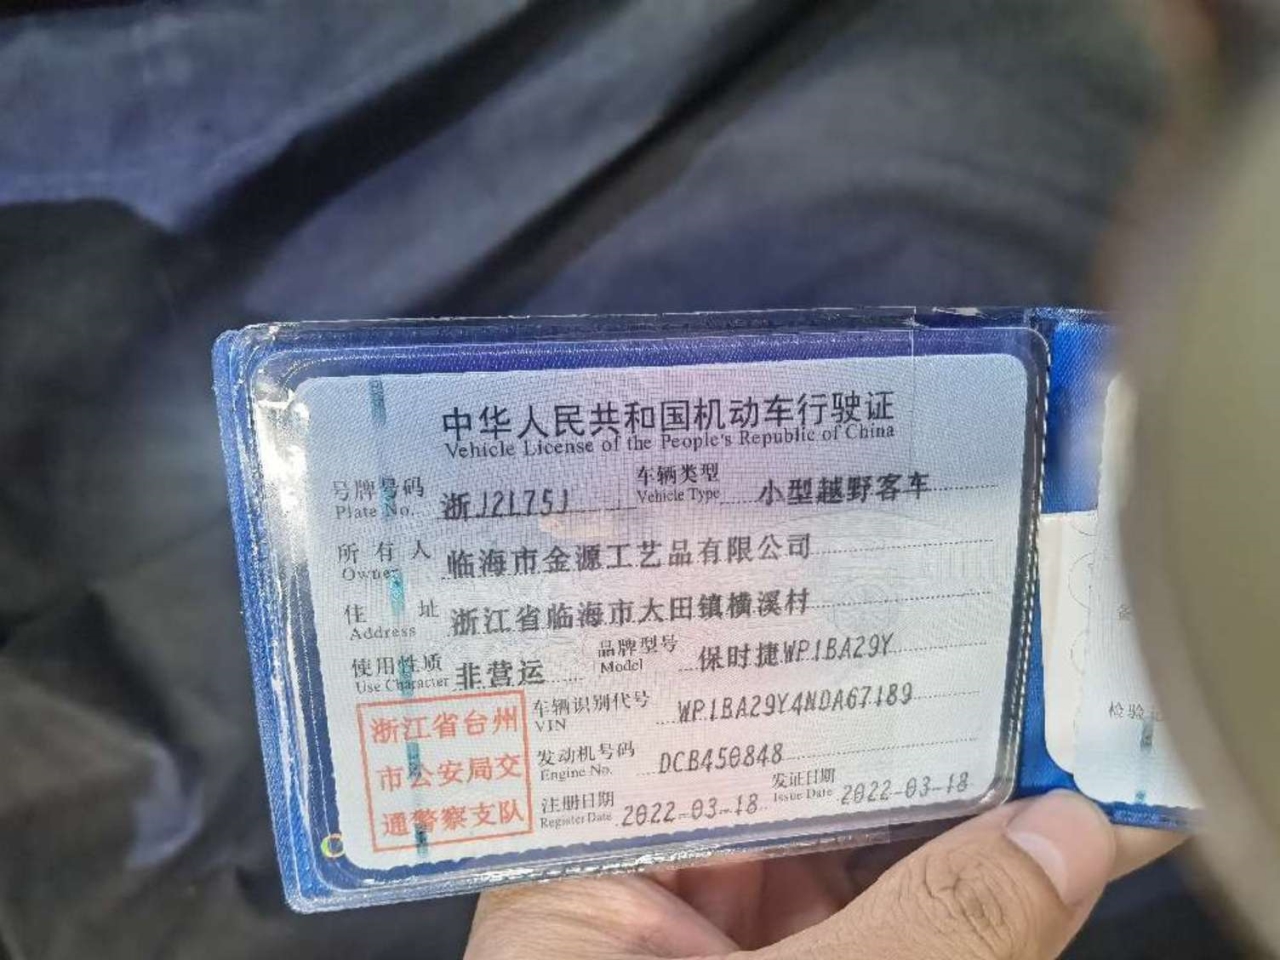 中华人民共和国机动车行驶证
Vehicle License of the People's Republic of China
号牌号码 浙J2L75J 车辆类型 小型越野客车
Plate No. Vehicle Type
所有人 临海市金源工艺品有限公司
Owner
住址 浙江省临海市大田镇横溪村
Address
使用性质 非营运 品牌型号 保时捷WP1BA29Y
Use Character Model
车辆识别代号 WP1BA29Y4NDA67189
VIN
发动机号码 DCB450848
Engine No.
注册日期 2022-03-18 发证日期 2022-03-18
Register Date Issue Date
浙江省台州
市公安局交
通警察支队
检验